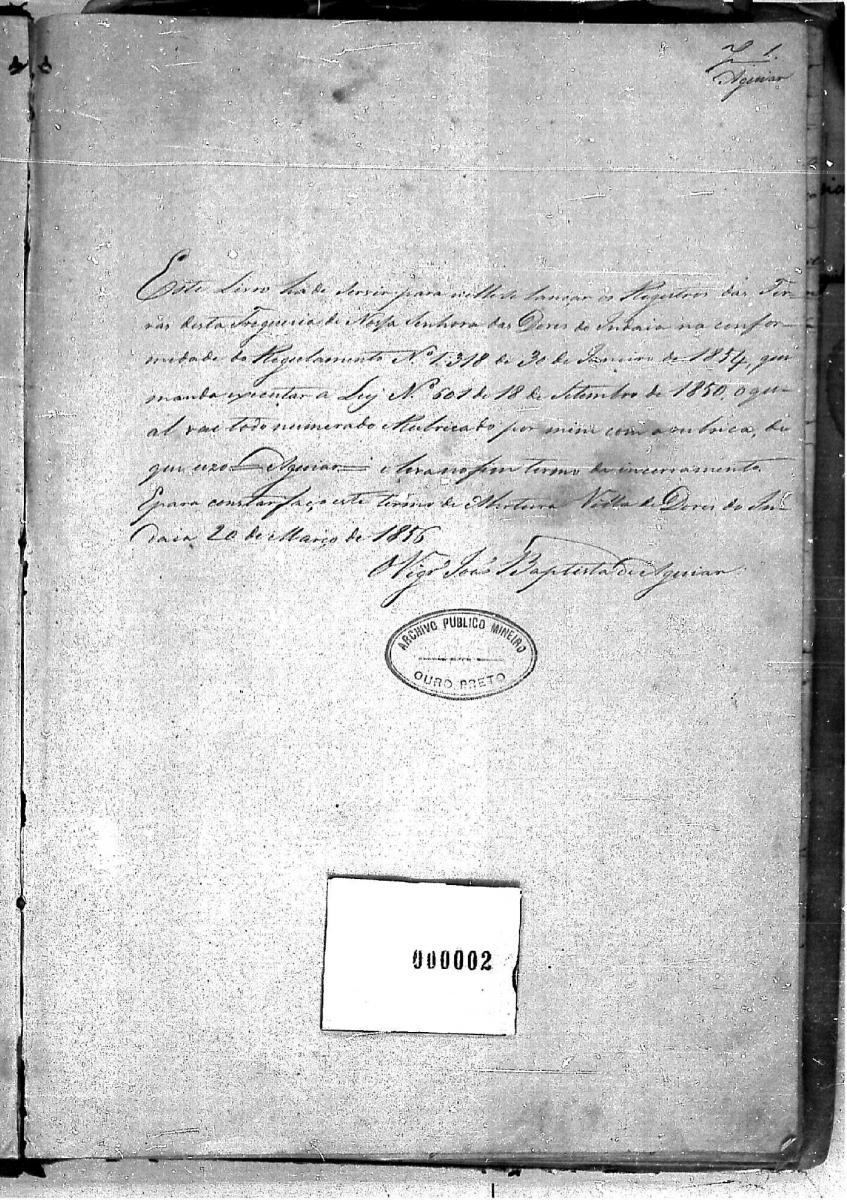 F 1.
Aguiar
Este Livro hade servir para nelle se lançar os Registros das Ter-
ras desta Freguesia de Nossa Senhora das Dores do Indaia na confor-
midade do Regulamento Nº 1.318 de 30 de Janeiro de 1854, que
manda executar a Ley Nº 601 de 18 de Setembro de 1850, o qu-
al vae todo numerado e Rubricado por mim com a rubrica, de
que uzo = Aguiar = e leva no fim termo de incerramento
E para constar faço este termo de Abertura Villa de Dores do In-
daia 20 de Março de 1856
O Vigrº João Baptista de Aguiar
ARCHIVO PUBLICO MINEIRO
OURO PRETO
000002